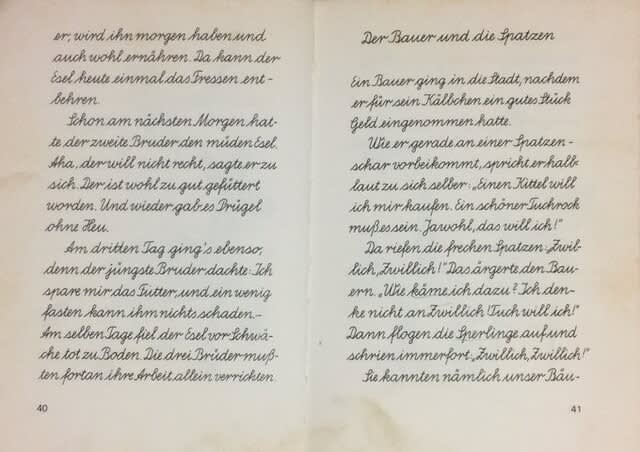 er, wird ihn morgen haben und
auch wohl ernähren. Da kann der
Esel heute einmal das Fressen ent-
behren.
Schon am nächsten Morgen hat-
te der zweite Bruder den müden Esel.
Aha, der will nicht recht, sagte er zu
sich. Der ist wohl zu gut gefüttert
worden. Und wieder gab es Prügel
ohne Heu.
Am dritten Tag ging's ebenso,
denn der jüngste Bruder dachte: Ich
spare mir das Futter, und ein wenig
fasten kann ihm nichts schaden. –
Am selben Tage fiel der Esel vor Schwä-
che tot zu Boden. Die drei Brüder muß-
ten fortan ihre Arbeit allein verrichten.
40
Der Bauer und die Spatzen
Ein Bauer ging in die Stadt, nachdem
er für sein Kälbchen ein gutes Stück
Geld eingenommen hatte.
Wie er gerade an einer Spatzen-
schar vorbeikommt, spricht er halb-
laut zu sich selber: „Einen Kittel will
ich mir kaufen. Ein schöner Tuchrock
muß es sein. Jawohl, das will ich!"
Da riefen die frechen Spatzen: „Zwil-
lich, Zwillich!" Das ärgerte den Bau-
ern. „Wie käme ich dazu? Ich den-
ke nicht an Zwillich! Tuch will ich!"
Dann flogen die Sperlinge auf und
schrien immerfort: „Zwillich, Zwillich!"
Sie kannten nämlich unser Bäu-
41